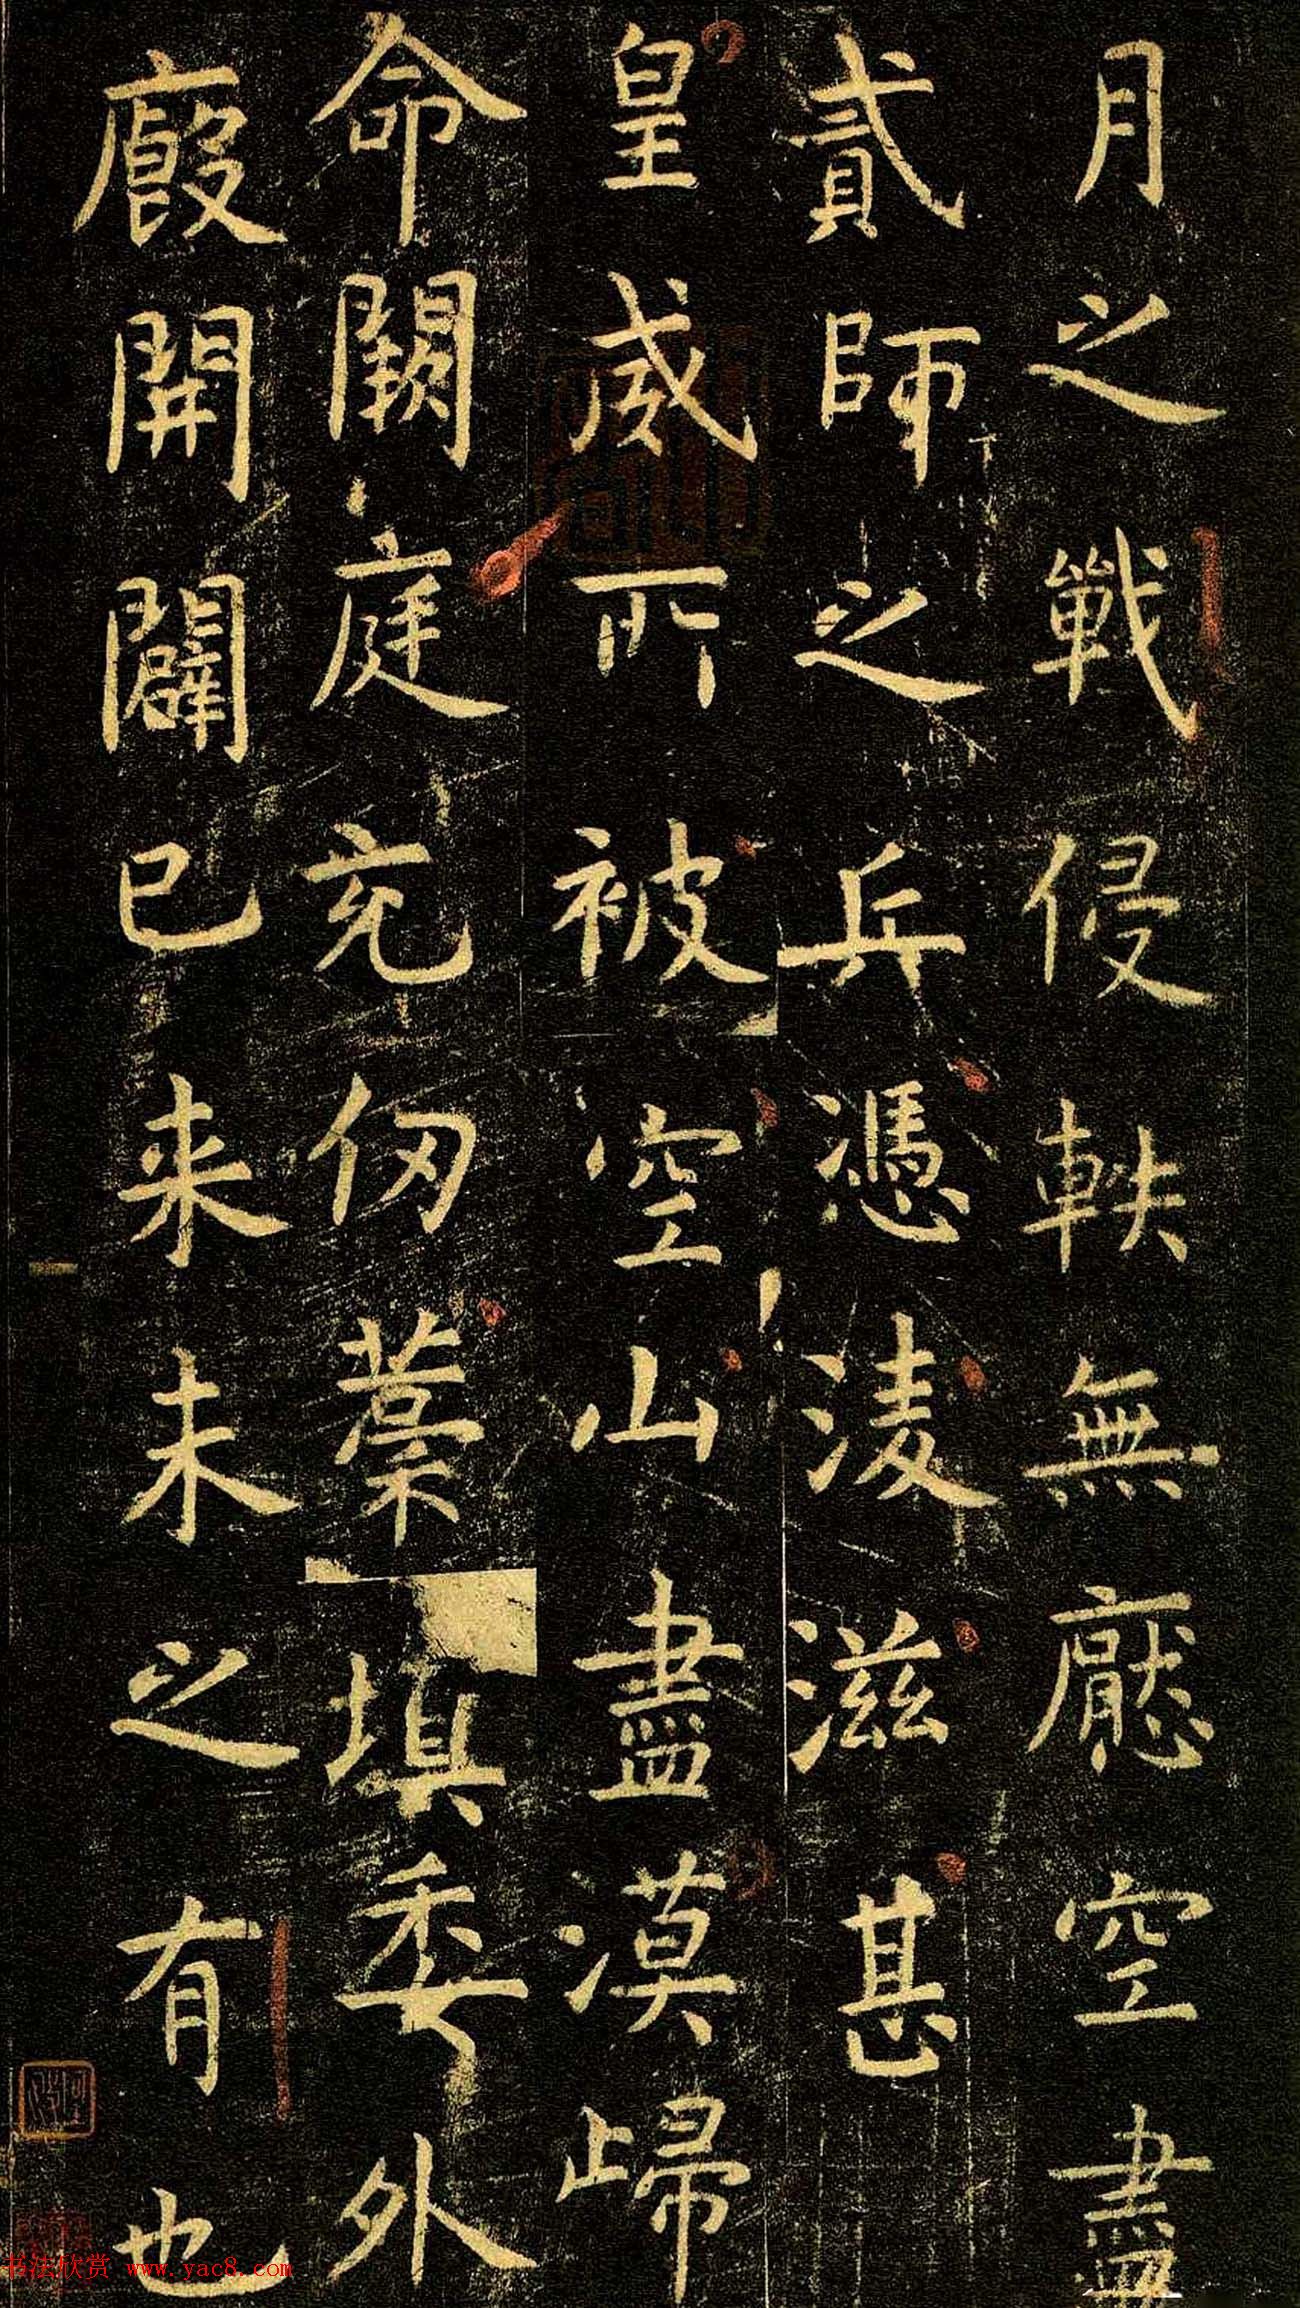 月之戰侵軼無厭空盡
貳師之兵憑淩滋甚
皇威所被空山盡漠歸
命闕庭充仞藁填委外
廄開闢已来未之有也
书法欣赏 www.yac8.com